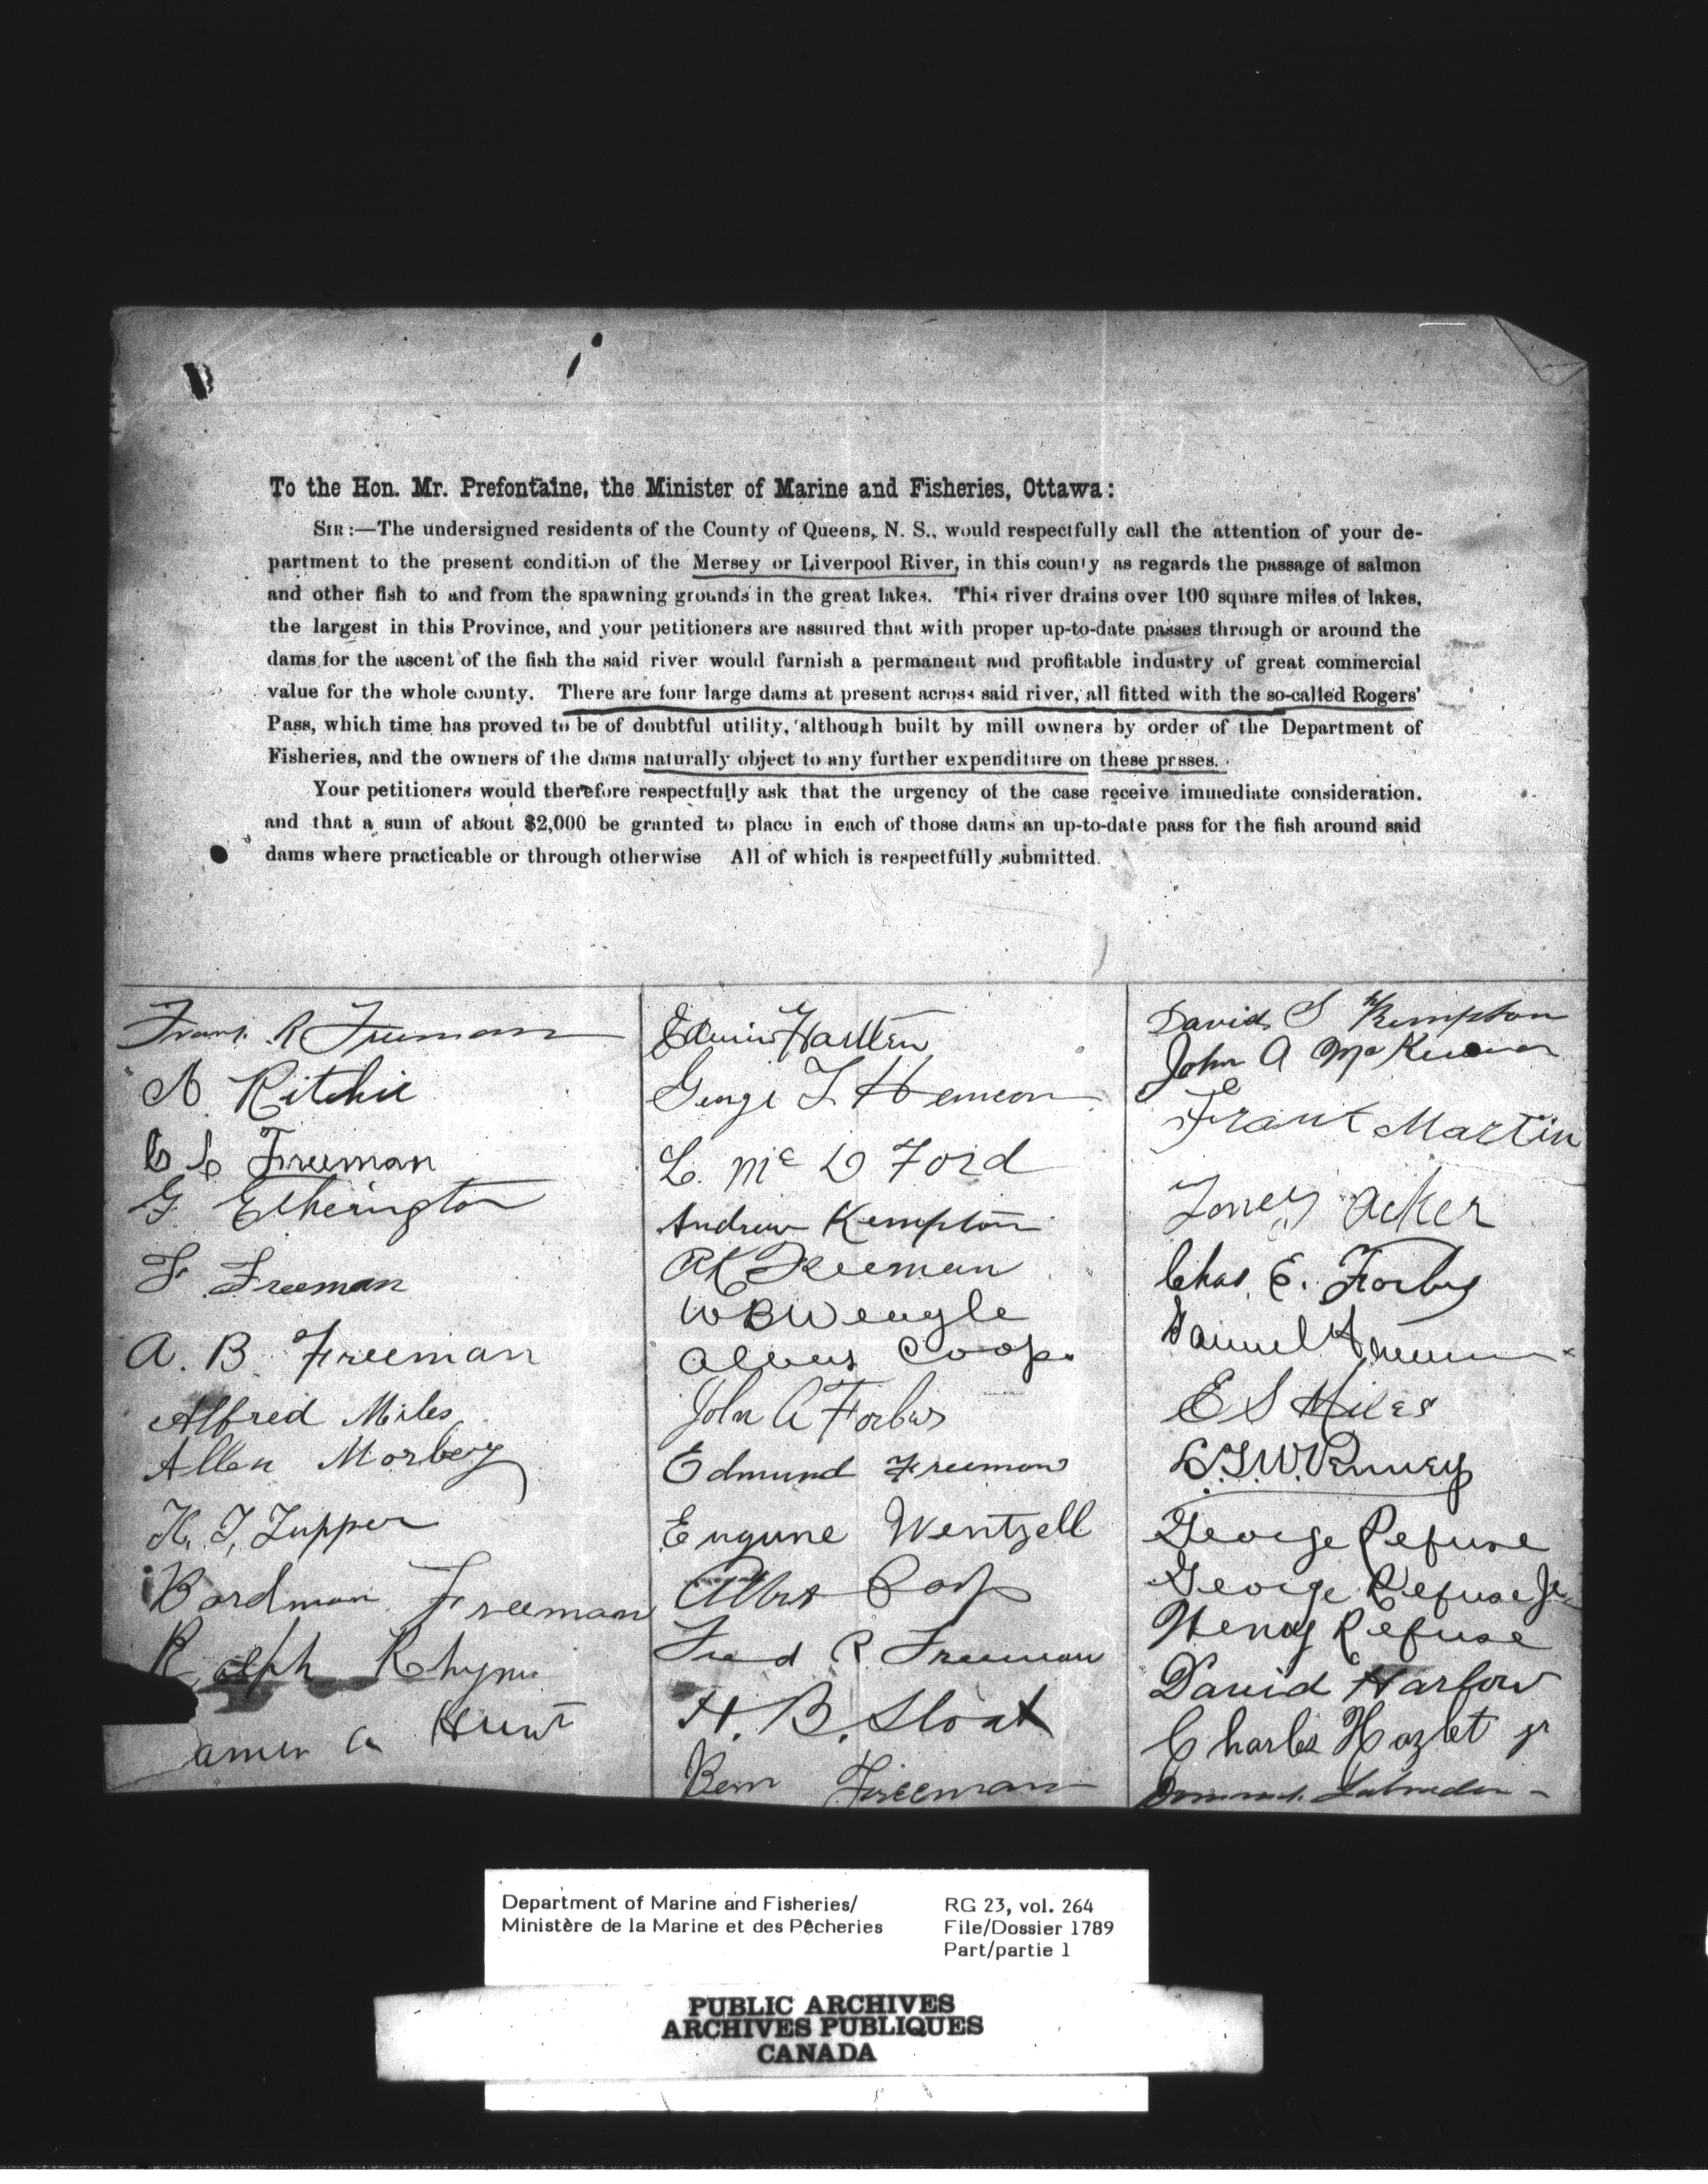 To the Hon. Mr. Prefontaine, the Minister of Marine and Fisheries, Ottawa:
SIR:—The undersigned residents of the County of Queens, N. S., would respectfully call the attention of your de-
partment to the present condition of the Mersey or Liverpool River, in this county as regards the passage of salmon
and other fish to and from the spawning grounds in the great lakes. This river drains over 100 square miles of lakes,
the largest in this Province, and your petitioners are assured that with proper up-to-date passes through or around the
dams for the ascent of the fish the said river would furnish a permanent and profitable industry of great commercial
value for the whole county. There are four large dams at present across said river, all fitted with the so-called Rogers'
Pass, which time has proved to be of doubtful utility, although built by mill owners by order of the Department of
Fisheries, and the owners of the dams naturally object to any further expenditure on these prsses.
Your petitioners would therefore respectfully ask that the urgency of the case receive immediate consideration.
and that a sum of about $2,000 be granted to place in each of those dams an up-to-date pass for the fish around said
dams where practicable or through otherwise All of which is respectfully submitted.
Frank R Freeman
A. Ritchie
C C Freeman
G Etherington
F Freeman
A. B. Freeman
Alfred Miles
Allen Morbey
K. T. Tupper
Bordman Freeman
Ralph Rhyno
Hunt
Edwin
George T
L. Mc D Ford
Andrew Kempton
A K Freeman
W B Weagle
Coop
John A Forbes
Edmund Freeman
Eugune Wentzell
Albert Coop
Fred R. Freeman
H. B. Sloat
Bern Freeman
David S Kempton
John A
Frank Martin
Toney Acker
Chas. E. Forbes
Samuel Freeman
E S Miles
Penney
George Refuse
George Refuse Jr
Henry Refuse
David Harlow
Charles Hazlet jr
Department of Marine and Fisheries/
Ministère de la Marine et des Pêcheries
RG 23, vol. 264
File/Dossier 1789
Part/partie 1
PUBLIC ARCHIVES
ARCHIVES PUBLIQUES
CANADA